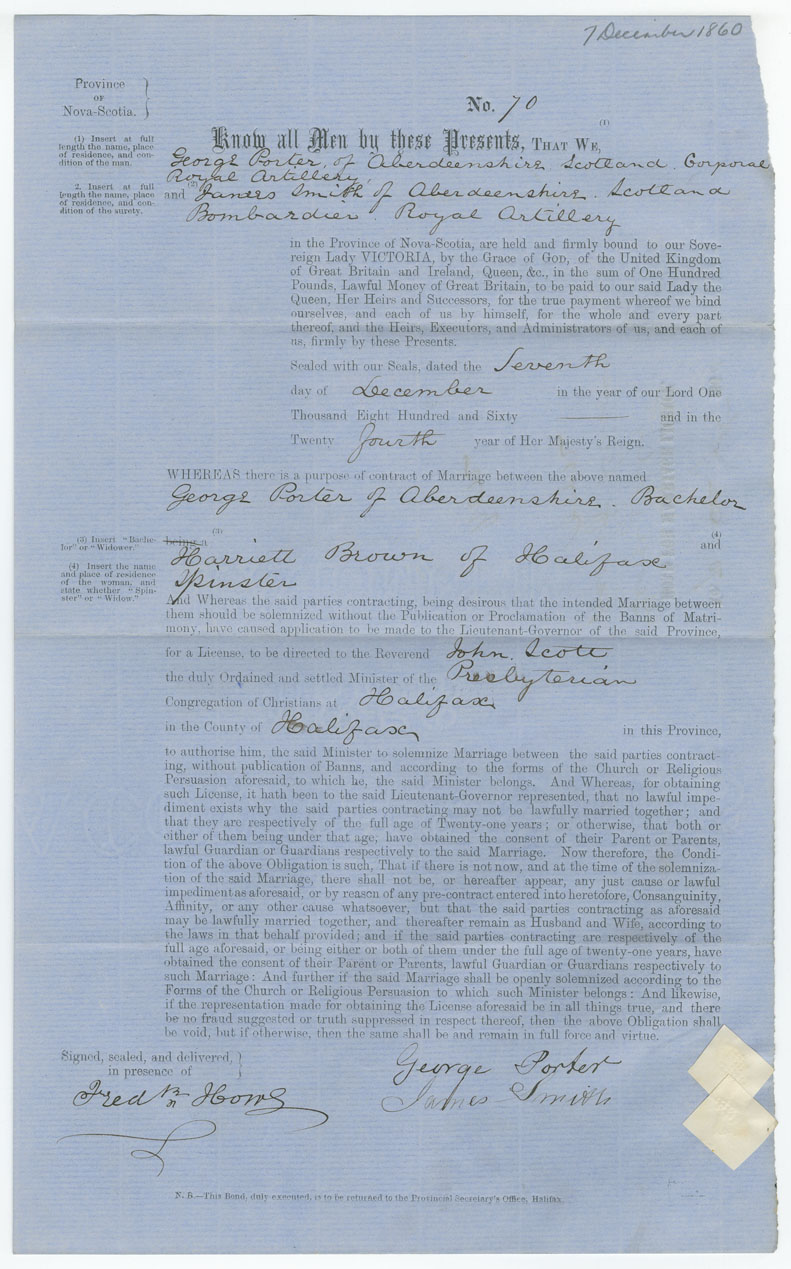 7 December 1860
Province
OF
Nova-Scotia.
No. 70
(1) Insert at full
length the name, place
of residence, and con-
dition of the man.
(1)
Know all Men by these Presents, THAT WE,
George Porter, of Aberdeenshire Scotland. Corporal
Royal Artillery
2. Insert at full
length the name, place
of residence, and con-
dition of the surety.
and (2) James Smith of Aberdeenshire. Scotland
Bombardier. Royal Artillery
in the Province of Nova-Scotia, are held and firmly bound to our Sove-
reign Lady VICTORIA, by the Grace of God, of the United Kingdom
of Great Britain and Ireland, Queen, &c., in the sum of One Hundred
Pounds, Lawful Money of Great Britain, to be paid to our said Lady the
Queen, Her Heirs and Successors, for the true payment whereof we bind
ourselves, and each of us by himself, for the whole and every part
thereof, and the Heirs, Executors, and Administrators of us, and each of
us, firmly by these Presents.
Sealed with our Seals, dated the Seventh
day of December in the year of our Lord One
Thousand Eight Hundred and Sixty —— and in the
Twenty fourth year of Her Majesty's Reign.
WHEREAS there is a purpose of contract of Marriage between the above named
George Porter of Aberdeenshire. Bachelor
(3) Insert "Bache-
lor" or "Widower."
being a (3)
(4)
and
Harriett Brown of Halifax
(4) Insert the name
and place of residence
of the woman, and
state whether "Spin-
ster" or "Widow."
Spinster
And Whereas the said parties contracting, being desirous that the intended Marriage between
them should be solemnized without the Publication or Proclamation of the Banns of Matri-
mony, have caused application to be made to the Lieutenant-Governor of the said Province,
for a License, to be directed to the Reverend John Scott
the duly Ordained and settled Minister of the Presbyterian
Congregation of Christians at Halifax
in the County of Halifax in this Province,
to authorise him, the said Minister to solemnize Marriage between the said parties contract-
ing, without publication of Banns, and according to the forms of the Church or Religious
Persuasion aforesaid, to which he, the said Minister belongs. And Whereas, for obtaining
such License, it hath been to the said Lieutenant-Governor represented, that no lawful impe-
diment exists why the said parties contracting may not be lawfully married together; and
that they are respectively of the full age of Twenty-one years; or otherwise, that both or
either of them being under that age, have obtained the consent of their Parent or Parents,
lawful Guardian or Guardians respectively to the said Marriage. Now therefore, the Condi-
tion of the above Obligation is such, That if there is not now, and at the time of the solemniza-
tion of the said Marriage, there shall not be, or hereafter appear, any just cause or lawful
impediment as aforesaid, or by reason of any pre-contract entered into heretofore, Consanguinity,
Affinity, or any other cause whatsoever, but that the said parties contracting as aforesaid
may be lawfully married together, and thereafter remain as Husband and Wife, according to
the laws in that behalf provided; and if the said parties contracting are respectively of the
full age aforesaid, or being either or both of them under the full age of twenty-one years, have
obtained the consent of their Parent or Parents, lawful Guardian or Guardians respectively to
such Marriage: And further if the said Marriage shall be openly solemnized according to the
Forms of the Church or Religious Persuasion to which such Minister belongs: And likewise,
if the representation made for obtaining the License aforesaid be in all things true, and there
be no fraud suggested or truth suppressed in respect thereof, then the above Obligation shall
be void, but if otherwise, then the same shall be and remain in full force and virtue.
Signed, sealed, and delivered,
in presence of
George Porter
James Smith
Fred
N. B.—This Bond, duly executed, is to be returned to the Provincial Secretary's Office, Halifax.